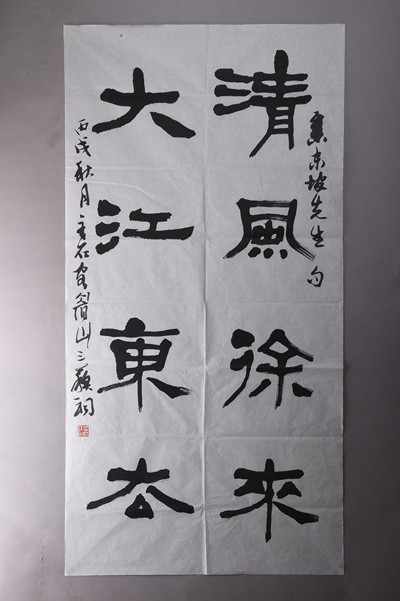 集东坡先生句
清風徐來
大江東去
丙戌秋月石眉山三蘇祠